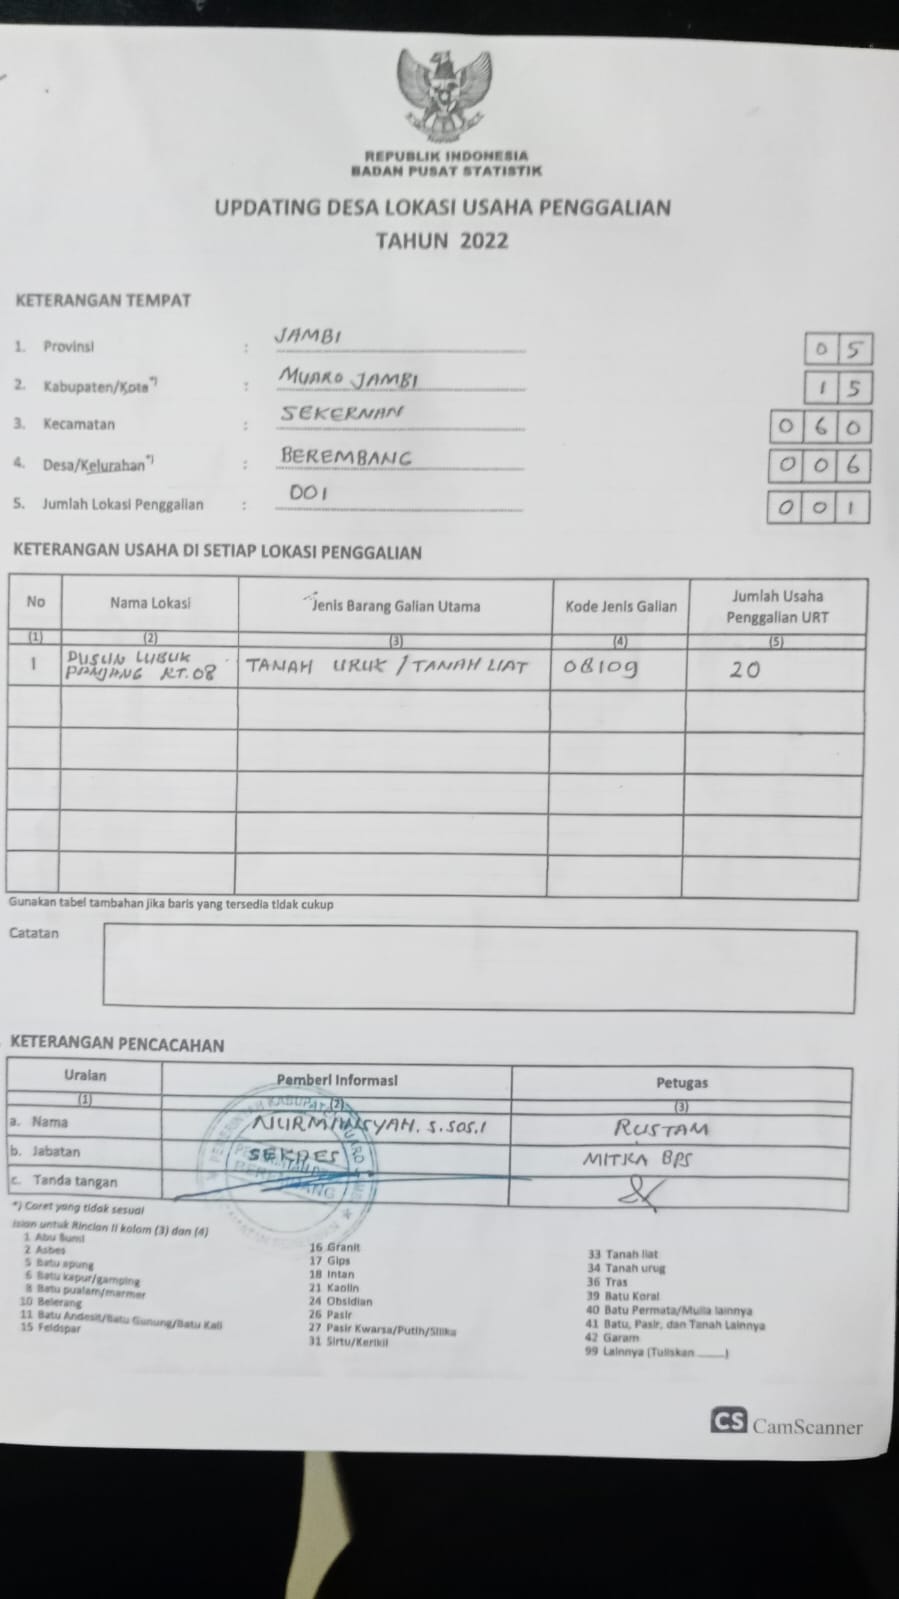 REPUBLIK INDONESIA
BADAN PUSAT STATISTIK
UPDATING DESA LOKASI USAHA PENGGALIAN
TAHUN 2022
KETERANGAN TEMPAT
1. Provinsi : JAMBI 0 5
2. Kabupaten/Kota*) : MUARO JAMBI 1 5
3. Kecamatan : SEKERNAN 0 6 0
4. Desa/Kelurahan*) : BEREMBANG 0 0 6
5. Jumlah Lokasi Penggalian : 001 0 0 1
KETERANGAN USAHA DI SETIAP LOKASI PENGGALIAN
No Nama Lokasi Jenis Barang Galian Utama Kode Jenis Galian Jumlah Usaha
Penggalian URT
(1) (2) (3) (4) (5)
1 DUSUN LUBUK TANAH URUK / TANAH LIAT 08109 20
PANJANG RT. 08
Gunakan tabel tambahan jika baris yang tersedia tidak cukup
Catatan
KETERANGAN PENCACAHAN
Uraian Pemberi Informasi Petugas
(1) (2) (3)
a. Nama NURMIANSYAH. S.SOS.I RUSTAM
b. Jabatan SEKDES MITRA BPS
c. Tanda tangan
BEREMBANG
*) Coret yang tidak sesuai
Isian untuk Rincian II kolom (3) dan (4)
1 Abu Bumi
2 Asbes
5 Batu apung
6 Batu kapur/gamping
8 Batu pualam/marmer
10 Belerang
11 Batu Andesit/Batu Gunung/Batu Kali
15 Feldspar
16 Granit
17 Gips
18 Intan
21 Kaolin
24 Obsidian
26 Pasir
27 Pasir Kwarsa/Putih/Silika
31 Sirtu/Kerikil
33 Tanah liat
34 Tanah urug
36 Tras
39 Batu Koral
40 Batu Permata/Mulia lainnya
41 Batu, Pasir, dan Tanah Lainnya
42 Garam
99 Lainnya (Tuliskan ______)
CS CamScanner